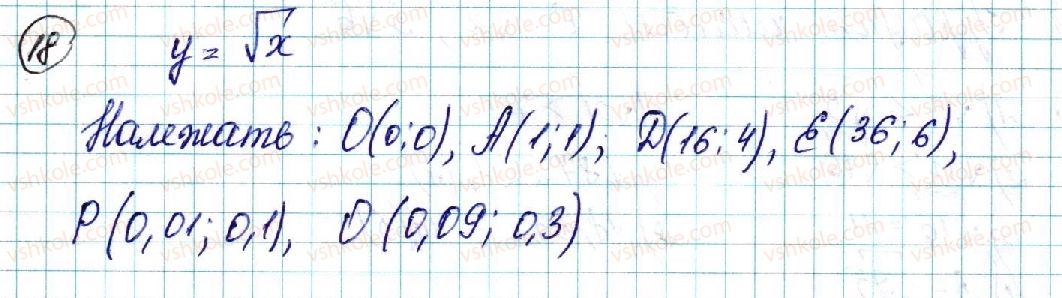 18 y = √x
Належать : O(0;0), A(1;1), D(16;4), E(36;6),
P(0,01; 0,1), O(0,09; 0,3)
vshkole.com